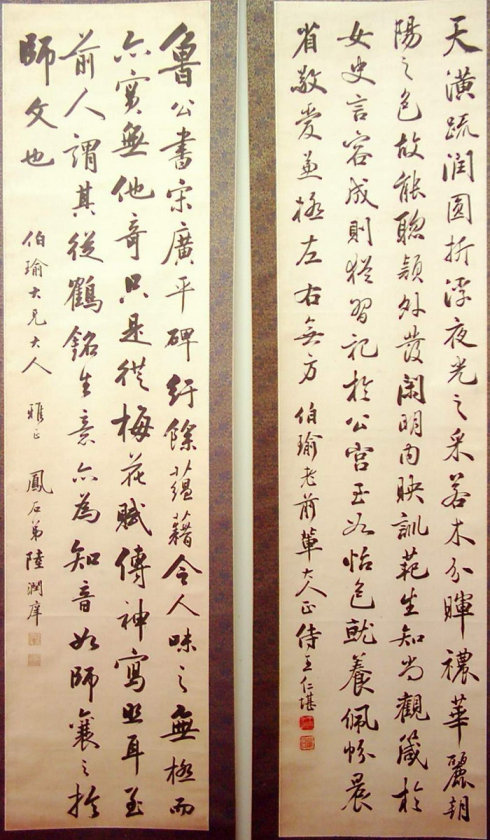 天潢疏潤圓折浮夜光之采若木分暉穠華麗朝
陽之色故能聰穎外發閑明内映訓範生知尚觀箴於
女史言容成則猶習記於公宮至如怡色就養佩帉晨
省敬愛兼極左右無方 伯瑜老前輩大人正 侍王仁堪
魯公書宋廣平碑紆餘蘊藉令人味之無極而
亦實無他奇只是從梅花賦傳神寫照耳至
前人謂其從鶴銘生意亦為知音如師襄之於
師文也 伯瑜大兄大人 雅正 鳳石弟陸潤庠